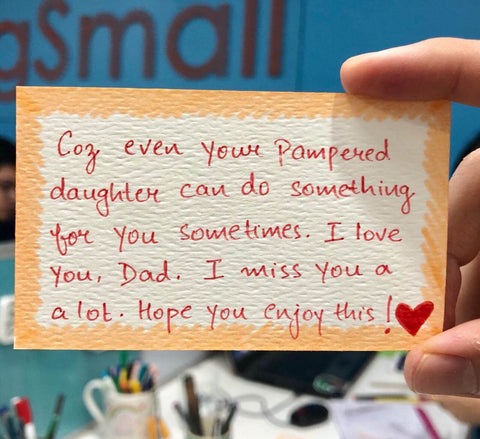 gSmall
Coz even your Pampered
daughter can do something
for you sometimes. I love
you, Dad. I miss you a
a lot. Hope you enjoy this!